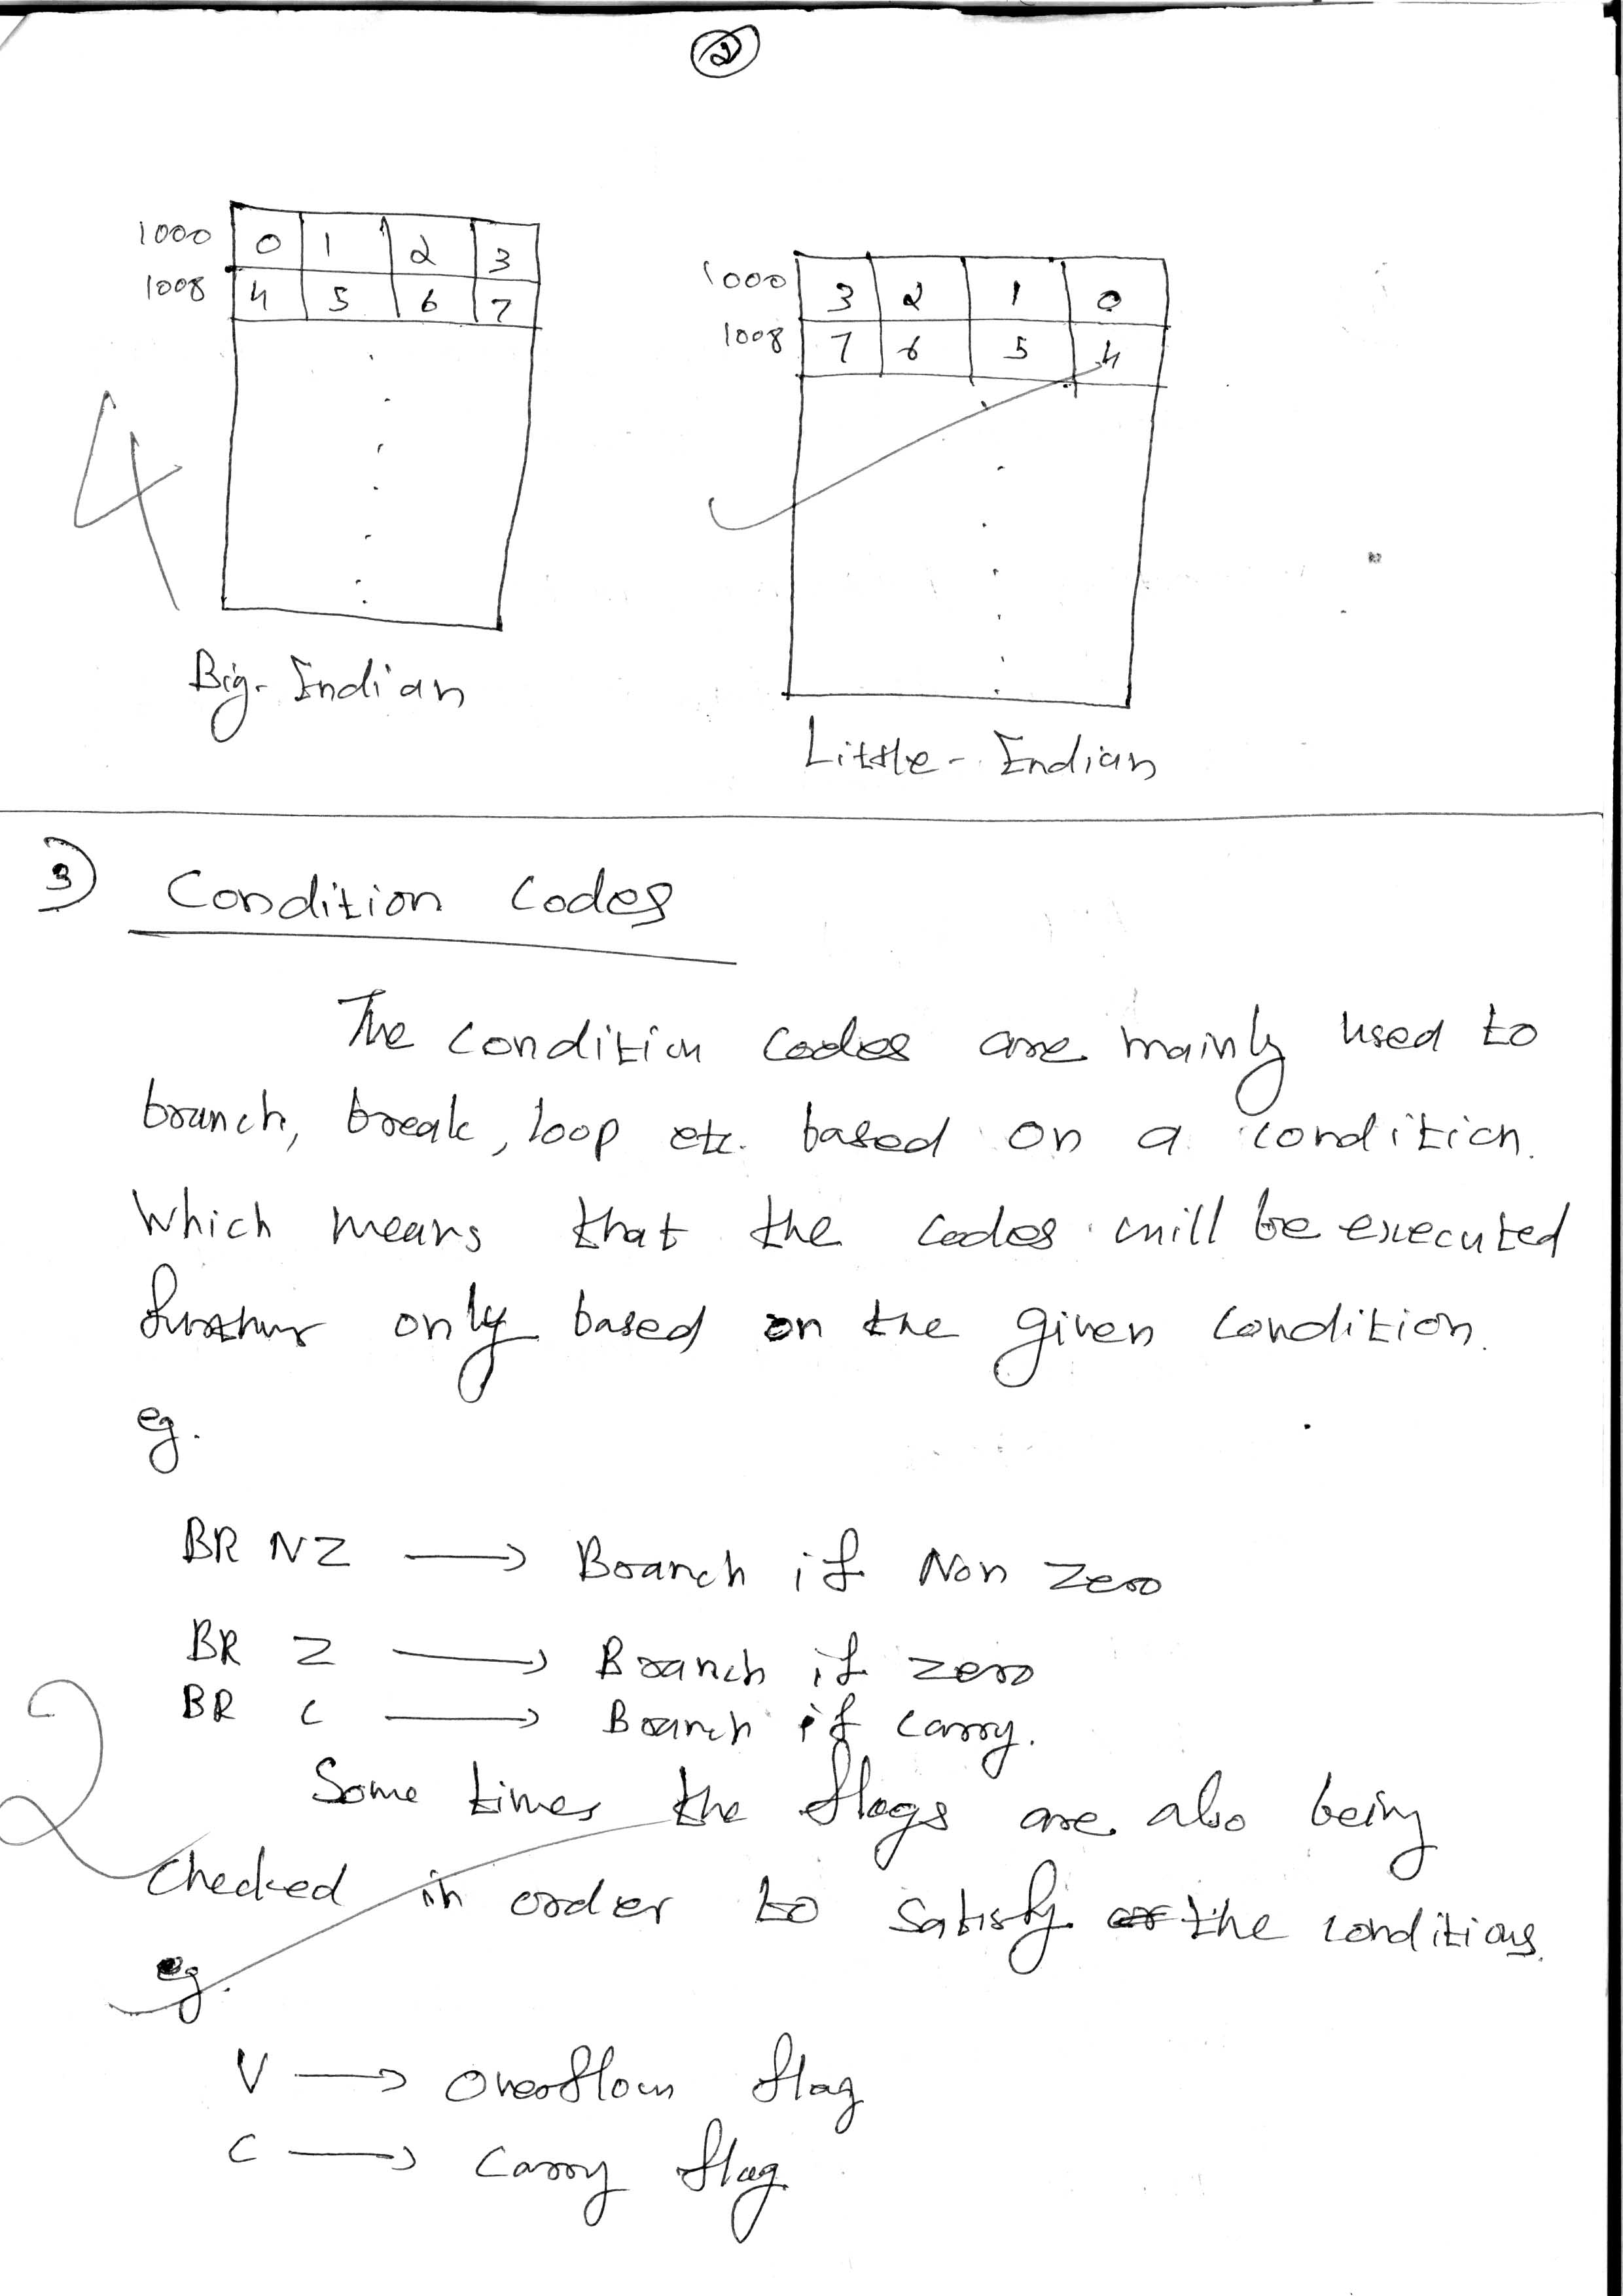 2
1000 0 1 2 3
1008 4 5 6 7
1000 3 2 1 0
1008 7 6 5 4
4
Big-Endian
Little-Endian
3) Condition Codes
The condition codes are mainly used to
branch, break, loop etc. based on a condition.
Which means that the codes will be executed
further only based on the given condition.
eg.
BR NZ → Branch if Non zero
BR Z → Branch if zero
BR C → Branch if carry.
2
Some times the flags are also being
checked in order to satisfy the conditions.
eg.
V → Overflow flag
C → Carry flag